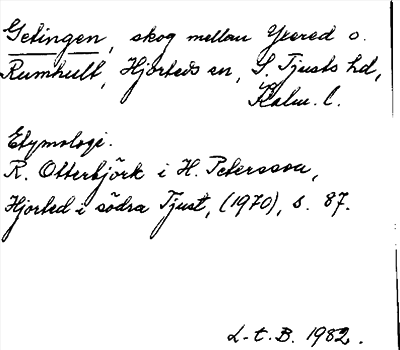 Getingen, skog mellan Yxered o.
Rumhult, Hjorteds sn, S. Tjusts hd,
Kalm. l.
Etymologi.
R. Otterbjörk i H. Petersson,
Hjorted i södra Tjust, (1970), s. 87.
L-t. B. 1982.